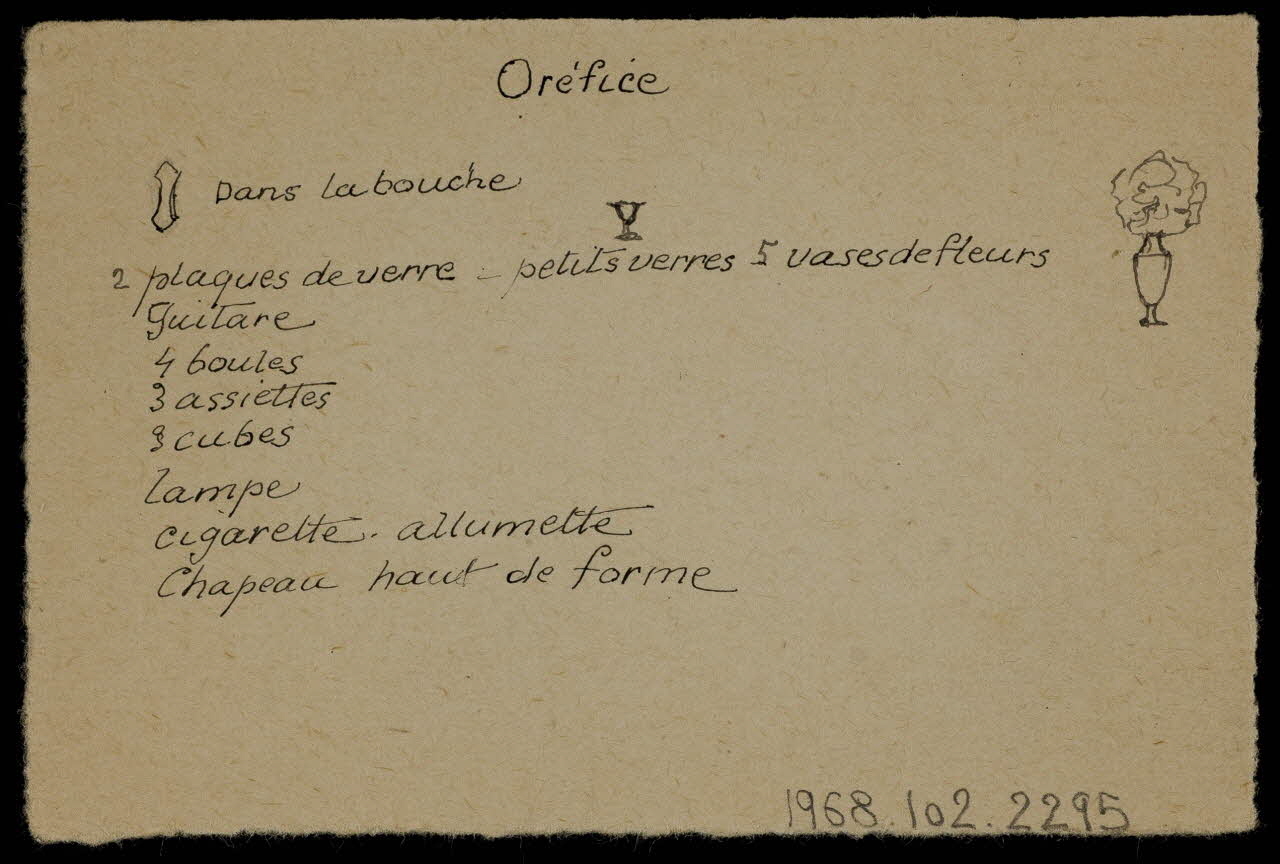 Oréfice
Dans la bouche
2 plaques de verre - petits verres 5 vases de fleurs
guitare
4 boules
3 assiettes
3 cubes
lampe
cigarette. allumette
Chapeau haut de forme
1968.102.2295